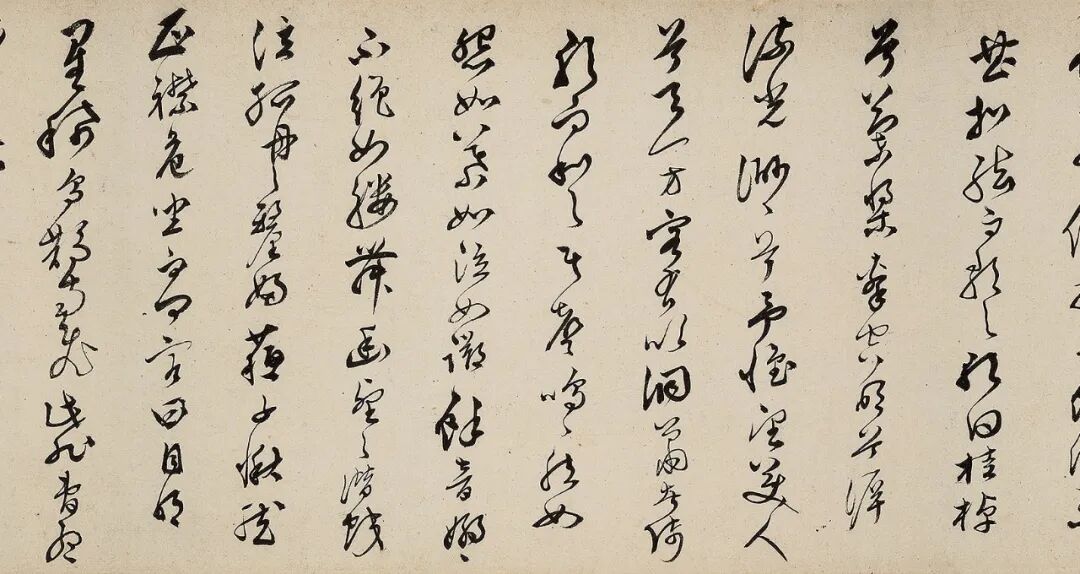 甚扣舷而歌之歌曰桂棹
兮蘭槳擊空明兮泝
流光渺々兮予懷望美人
兮天一方客有吹洞簫者倚
歌而和之其聲嗚々然如
怨如慕如泣如訴餘音嫋々
不絕如縷舞幽壑之潛蛟
泣孤舟之嫠婦蘇子愀然
正襟危坐而問客曰月明
星稀烏鵲南飛此非曹孟